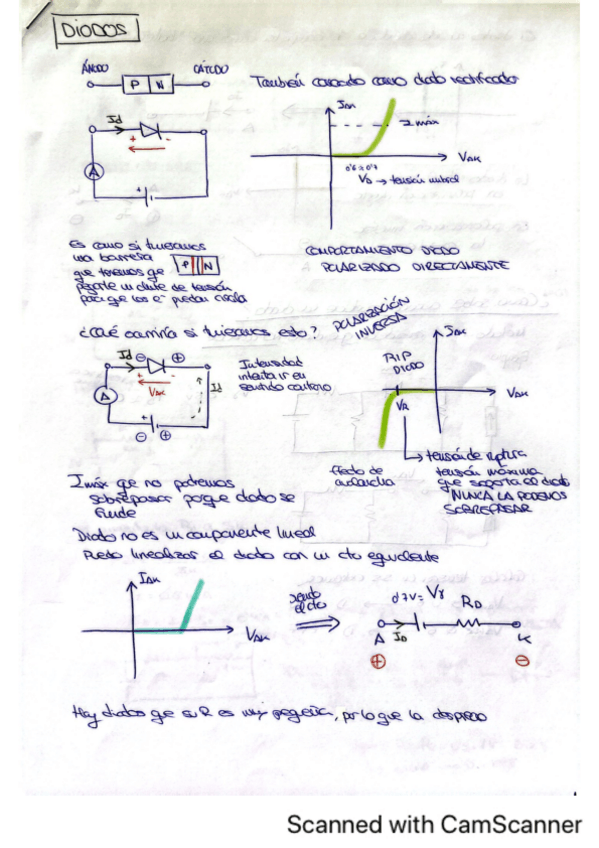 DIODOS
ÁNODO CÁTODO
P N
También conocido como diodo rectificador
Id
+ -
A
+ -
IAK
I máx
VAK
0'6 ≃ 0'7
Vγ → tensión umbral
Es como si tuviéramos
una barrera
que tenemos que
pegarle un chute de tensión
para que los e⁻ puedan circular
P N
COMPORTAMIENTO DIODO
POLARIZADO DIRECTAMENTE
¿Qué ocurriría si tuviésemos esto?
POLARIZACIÓN
INVERSA
Id ⊖ ⊕
VAK
A
Id
⊖ ⊕
Intensidad
intenta ir en
sentido contrario
IAK
RIP
DIODO
VAK
VR
tensión de ruptura
tensión máxima
que soporta el diodo
NUNCA LA PODEMOS
SOBREPASAR
Efecto de
avalancha
I máx que no podemos
sobrepasar porque diodo se
funde
Diodo no es un componente lineal
Puedo linealizar el diodo con un cto equivalente
IAK
VAK
siendo
el cto
0'7V = Vγ
RD
A ID K
⊕ ⊖
Hay diodos que su R es muy pequeña, por lo que la desprecio
Scanned with CamScanner